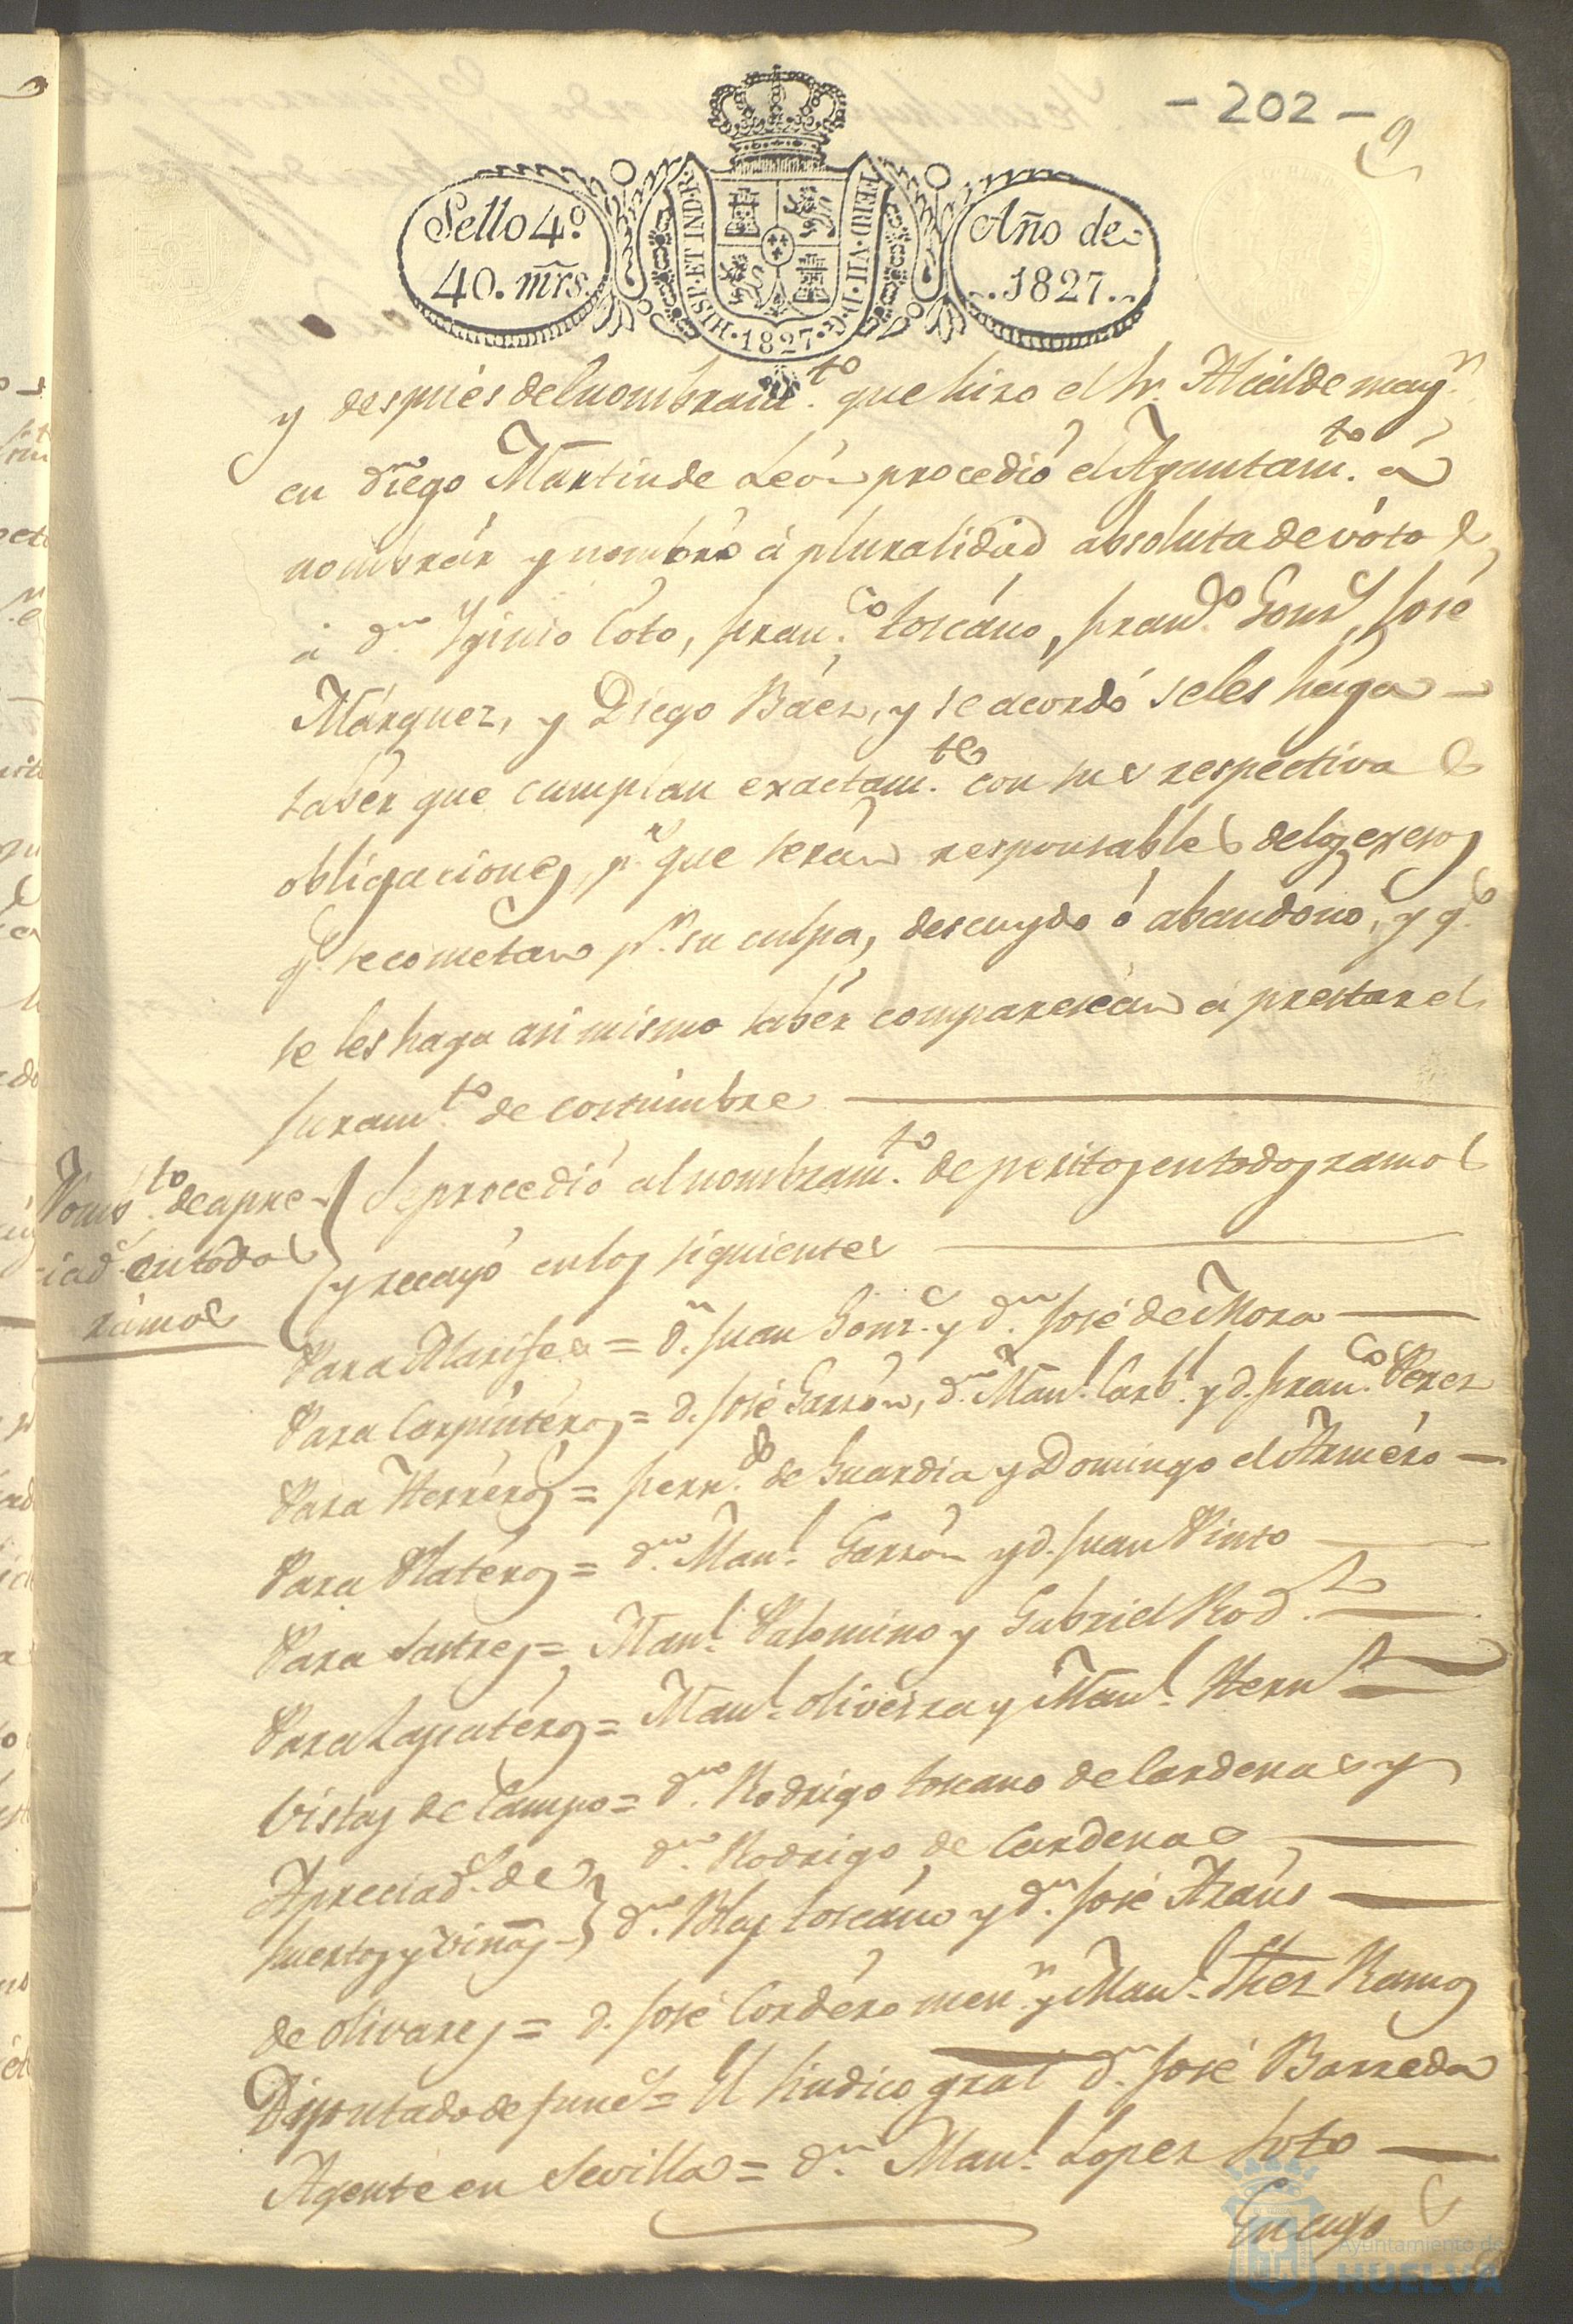 - 202 -
9
Sello 4º
40. mrs.
HISP. ET IND. R.
FERD. VII. D. G.
1827
Año de
1827.
y despues del nombram.to que hizo el Sr. Alcalde may.r
en Diego Martin de Leon procedió el Ayuntam.to á
nombrár y nombró á pluralidad absoluta de votos
á d.n Yginio Coto, Fran.co Toscáno, Fran.co Gonz, José
Márquez, y Diego Báez, y se acordó seles hága
sabér que cumplan exactam.te con sus respectivas
obligaciones, p.r que serán responsables de los exesos
q.e se cometan p.r su culpa, descuydo ó abandóno, y q.e
se les haga asi mismo sabér comparescán á prestar el
juram.to de costúmbre
Nomb.to de apre-
ciad.s en todos
rámos
Se procedió al nombram.to de peritos en todos ramos
y recayó en los siguientes
Para Alarifes = d.n Juan Gonz. y d.n José de Mora
Para Carpintéros = d. José Garzón, d.n Man.l Carb.l y d. Fran.co Perez
Para Herréros = Fern.do de Guardia y Domingo el Arméro
Para Platéros = d.n Man.l Garzón y d. Juan Pinto
Para Sastres = Man.l Palomino y Gabriel Rod.z
Para Zapatéros = Man.l oliveira y Man.l Hern.z
Vistas de Campo = d.n Rodrigo Toscano de Cardenas y
d.n Rodrigo de Cardenas
Apreciad.s de
huertas y viñas } d.n Blas Toscáno y d.n José Aráus
de olivares = d. José Cordéro men.r y Man.l Shez Ramos
Diputado de func.s = El Sindico gral d.n José Barreda
Agente en Sevilla = d.n Man.l Lopez Soto
En cuyo
Ayuntamiento de
HUELVA